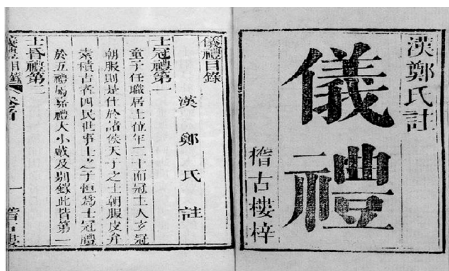 漢鄭氏註
儀禮
稽古樓梓
儀禮目錄
漢鄭氏註
士冠禮第一
童子任職居士位年二十而冠主人玄冠
朝服則是仕於諸侯天子之士朝服皮弁
素積古者四民世事士之子恒為士冠禮
於五禮屬嘉禮大小戴及別錄此皆第一
士昏禮第